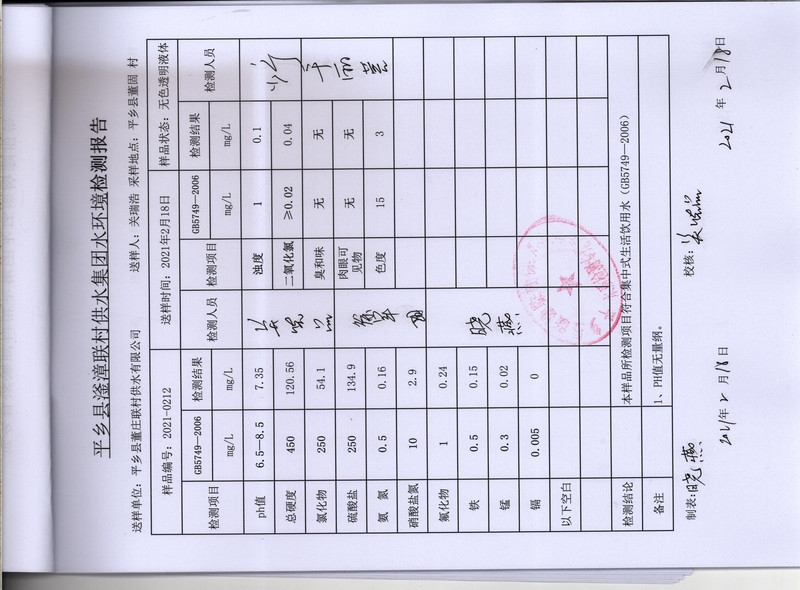 平乡县滏漳联村供水集团水环境检测报告
送样单位：平乡县董庄联村供水有限公司 送样人：关瑞浩 采样地点：平乡县董固 村
样品编号：2021-0212 送样时间：2021年2月18日 样品状态：无色透明液体
检测项目 GB5749—2006 检测结果 检测人员 检测项目 GB5749—2006 检测结果 检测人员
mg/L mg/L mg/L mg/L
ph值 6.5—8.5 7.35 浊度 1 0.1
总硬度 450 120.56 二氧化氯 ≥0.02 0.04
氯化物 250 54.1 臭和味 无 无
硫酸盐 250 134.9 肉眼可见物 无 无
氨 氮 0.5 0.16 色度 15 3
硝酸盐氮 10 2.9
氟化物 1 0.24
铁 0.5 0.15 晓燕
锰 0.3 0.02
镉 0.005 0
以下空白
检测结论 本样品所检测项目符合集中式生活饮用水（GB5749—2006）
备注 1、PH值无量纲。
制表：晓燕 校核：
2021年2月18日 2021年2月18日